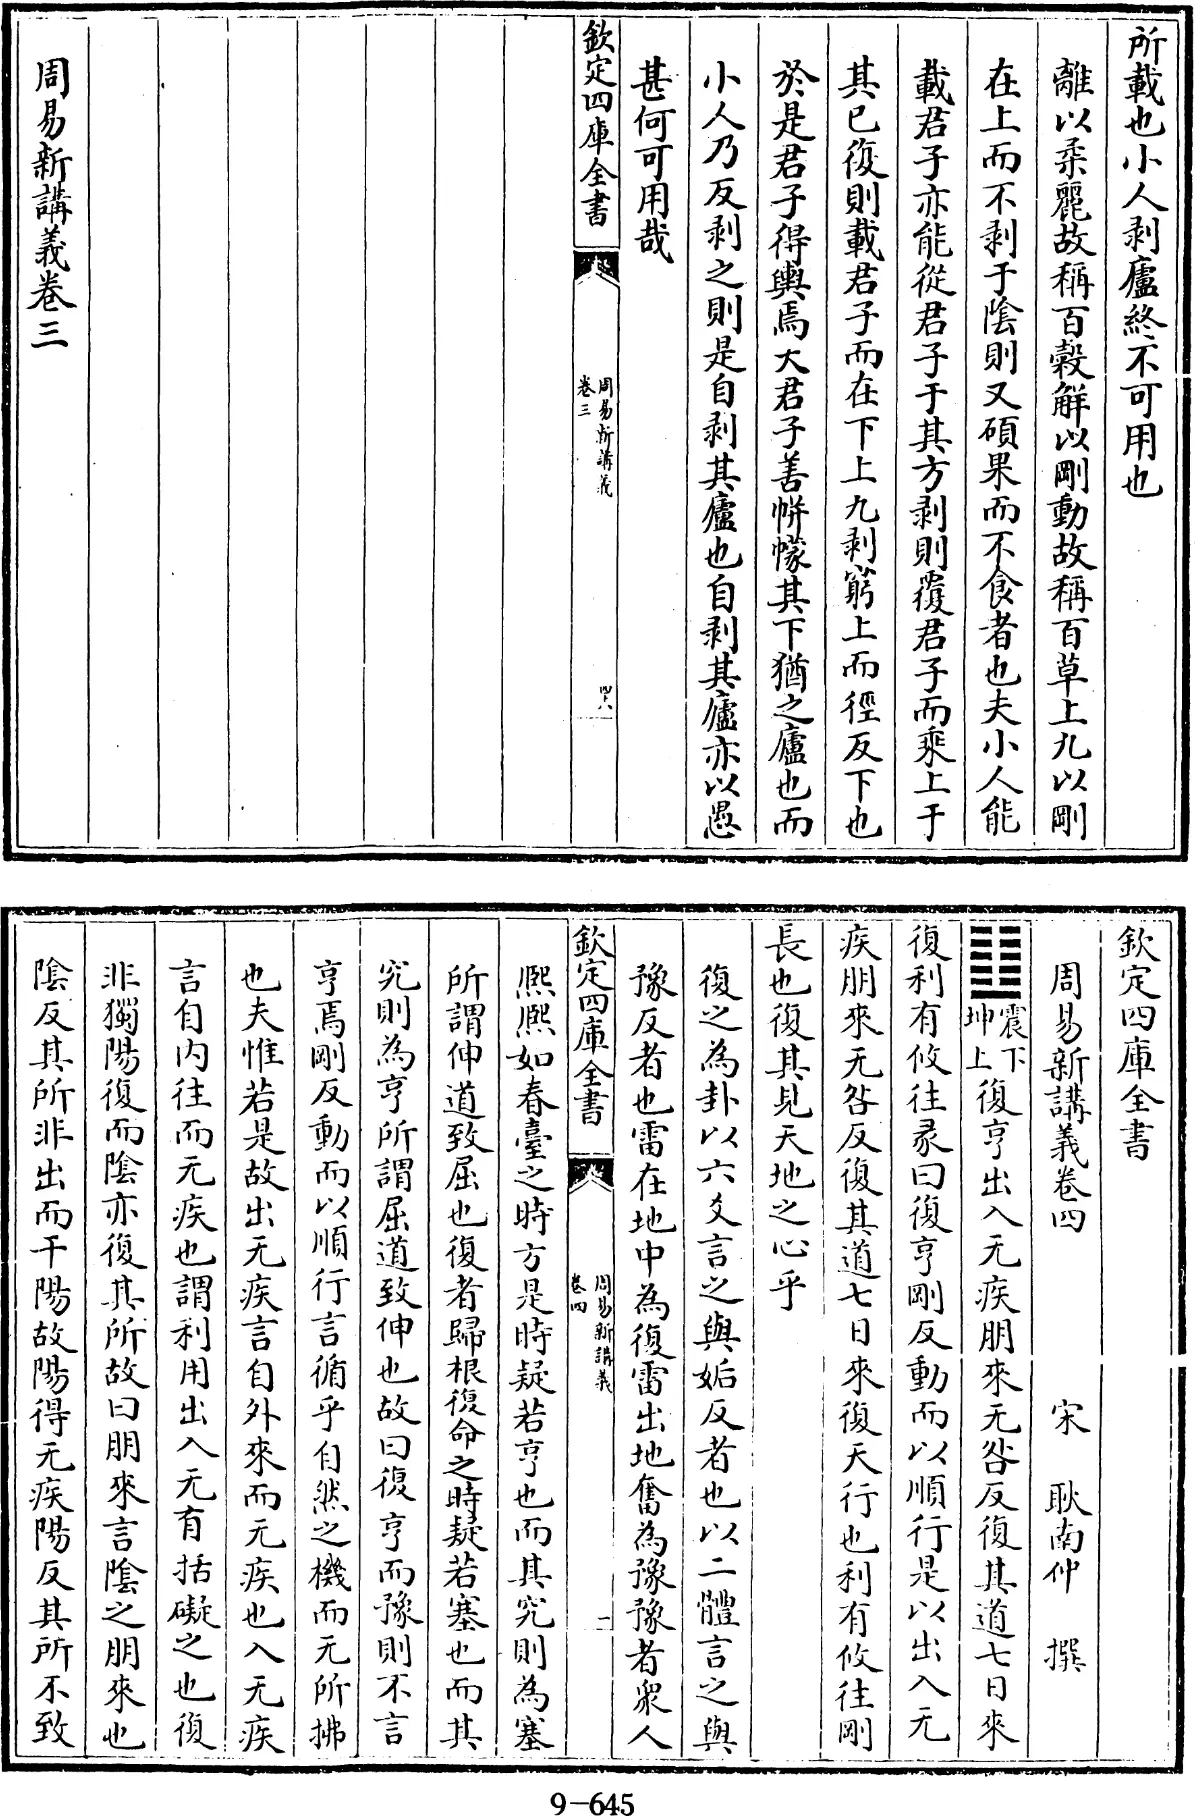 所載也小人剥廬終不可用也
離以柔麗故稱百穀解以剛動故稱百草上九以剛
在上而不剥于陰則又碩果而不食者也夫小人能
載君子亦能從君子于其方剥則覆君子而乘上于
其已復則載君子而在下上九剥窮上而徑反下也
於是君子得輿焉大君子善帡幪其下猶之廬也而
小人乃反剥之則是自剥其廬也自剥其廬亦以愚
甚何可用哉
欽定四庫全書
周易新講義
卷三
四八
周易新講義卷三
欽定四庫全書
周易新講義卷四
宋 耿南仲 撰
震下
坤上
復亨出入无疾朋來无咎反復其道七日來
復利有攸往彖曰復亨剛反動而以順行是以出入无
疾朋來无咎反復其道七日來復天行也利有攸往剛
長也復其見天地之心乎
復之為卦以六爻言之與姤反者也以二體言之與
豫反者也雷在地中為復雷出地奮為豫豫者衆人
欽定四庫全書
周易新講義
卷四
一
熈熈如春臺之時方是時疑若亨也而其究則為塞
所謂伸道致屈也復者歸根復命之時疑若塞也而其
究則為亨所謂屈道致伸也故曰復亨而豫則不言
亨焉剛反動而以順行言循乎自然之機而无所拂
也夫惟若是故出无疾言自外來而无疾也入无疾
言自内往而无疾也謂利用出入无有括礙之也復
非獨陽復而陰亦復其所故曰朋來言陰之朋來也
陰反其所非出而干陽故陽得无疾陽反其所不致
9-645